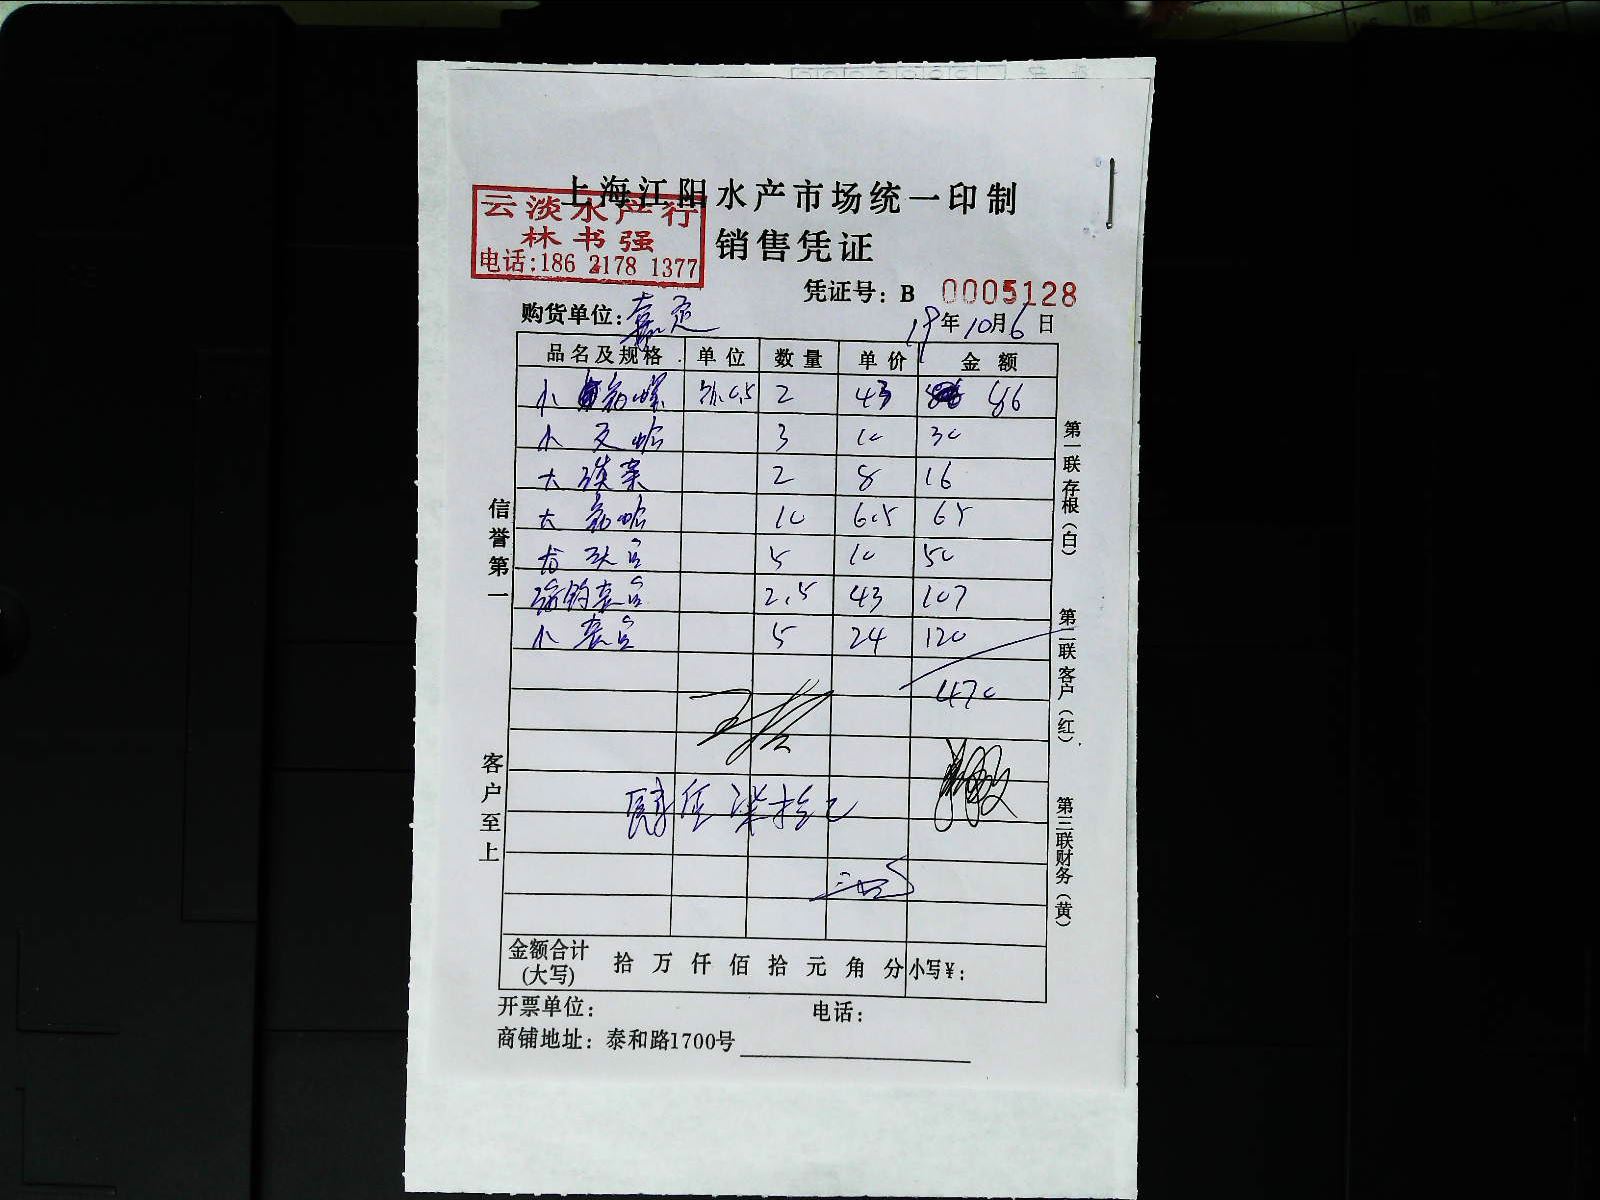 上海江阳水产市场统一印制
云淡水产行
林书强
电话:186 2178 1377
销售凭证
凭证号: B 0005128
购货单位:嘉定
19年10月6日
品名及规格 单位 数量 单价 金额
小 2 43 86
小 文蛤 3 10 30
大 2 8 16
大 10 6.5 65
5 10 50
2.5 43 107
小 5 24 120
470
肆佰柒拾
金额合计(大写) 拾 万 仟 佰 拾 元 角 分 小写¥:
开票单位: 电话:
商铺地址: 泰和路1700号
信誉第一
客户至上
第一联 存根(白)
第二联 客户(红)
第三联 财务(黄)